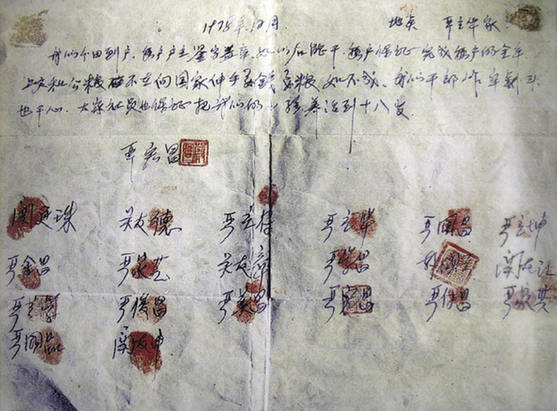 1978年12月 地点 严立华家
我们分田到户,每户户主签字盖章,如以后能干,每户保证完成每户的全年
上交和公粮,不在向国家伸手要钱要粮,如不成,我们干部作牢杀头
也干心,大家社员也保证把我们的小孩养活到十八岁。
严宏昌
关廷珠 关友德 严立符 严立华 严国昌 严立坤
严金昌 严家芝 关友章 严学昌 韩国云 关友江
严立学 严俊昌 严美昌 严宏昌 严付昌 严家其
严国品 关友申